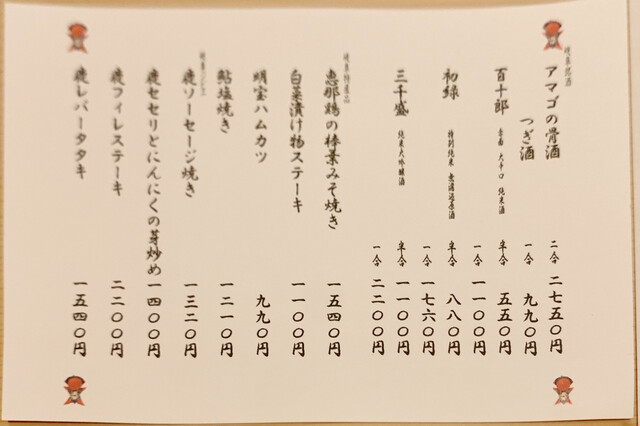 岐阜地酒
アマゴの骨酒 二合 二七五〇円
つぎ酒 一合 九九〇円
百十郎 赤面 大辛口 純米酒 半合 五五〇円
一合 一一〇〇円
初緑 特別純米 無濾過原酒 半合 八八〇円
一合 一七六〇円
三千盛 純米大吟醸酒 半合 一一〇〇円
一合 二二〇〇円
岐阜特産品
恵那鶏の棒葉みそ焼き 一五四〇円
白菜漬け物ステーキ 一一〇〇円
明宝ハムカツ 九九〇円
鮎塩焼き 一二一〇円
岐阜ジビエ
鹿ソーセージ焼き 一三二〇円
鹿セセリとにんにくの芽炒め 一四〇〇円
鹿フィレステーキ 二二〇〇円
鹿レバータタキ 一五四〇円